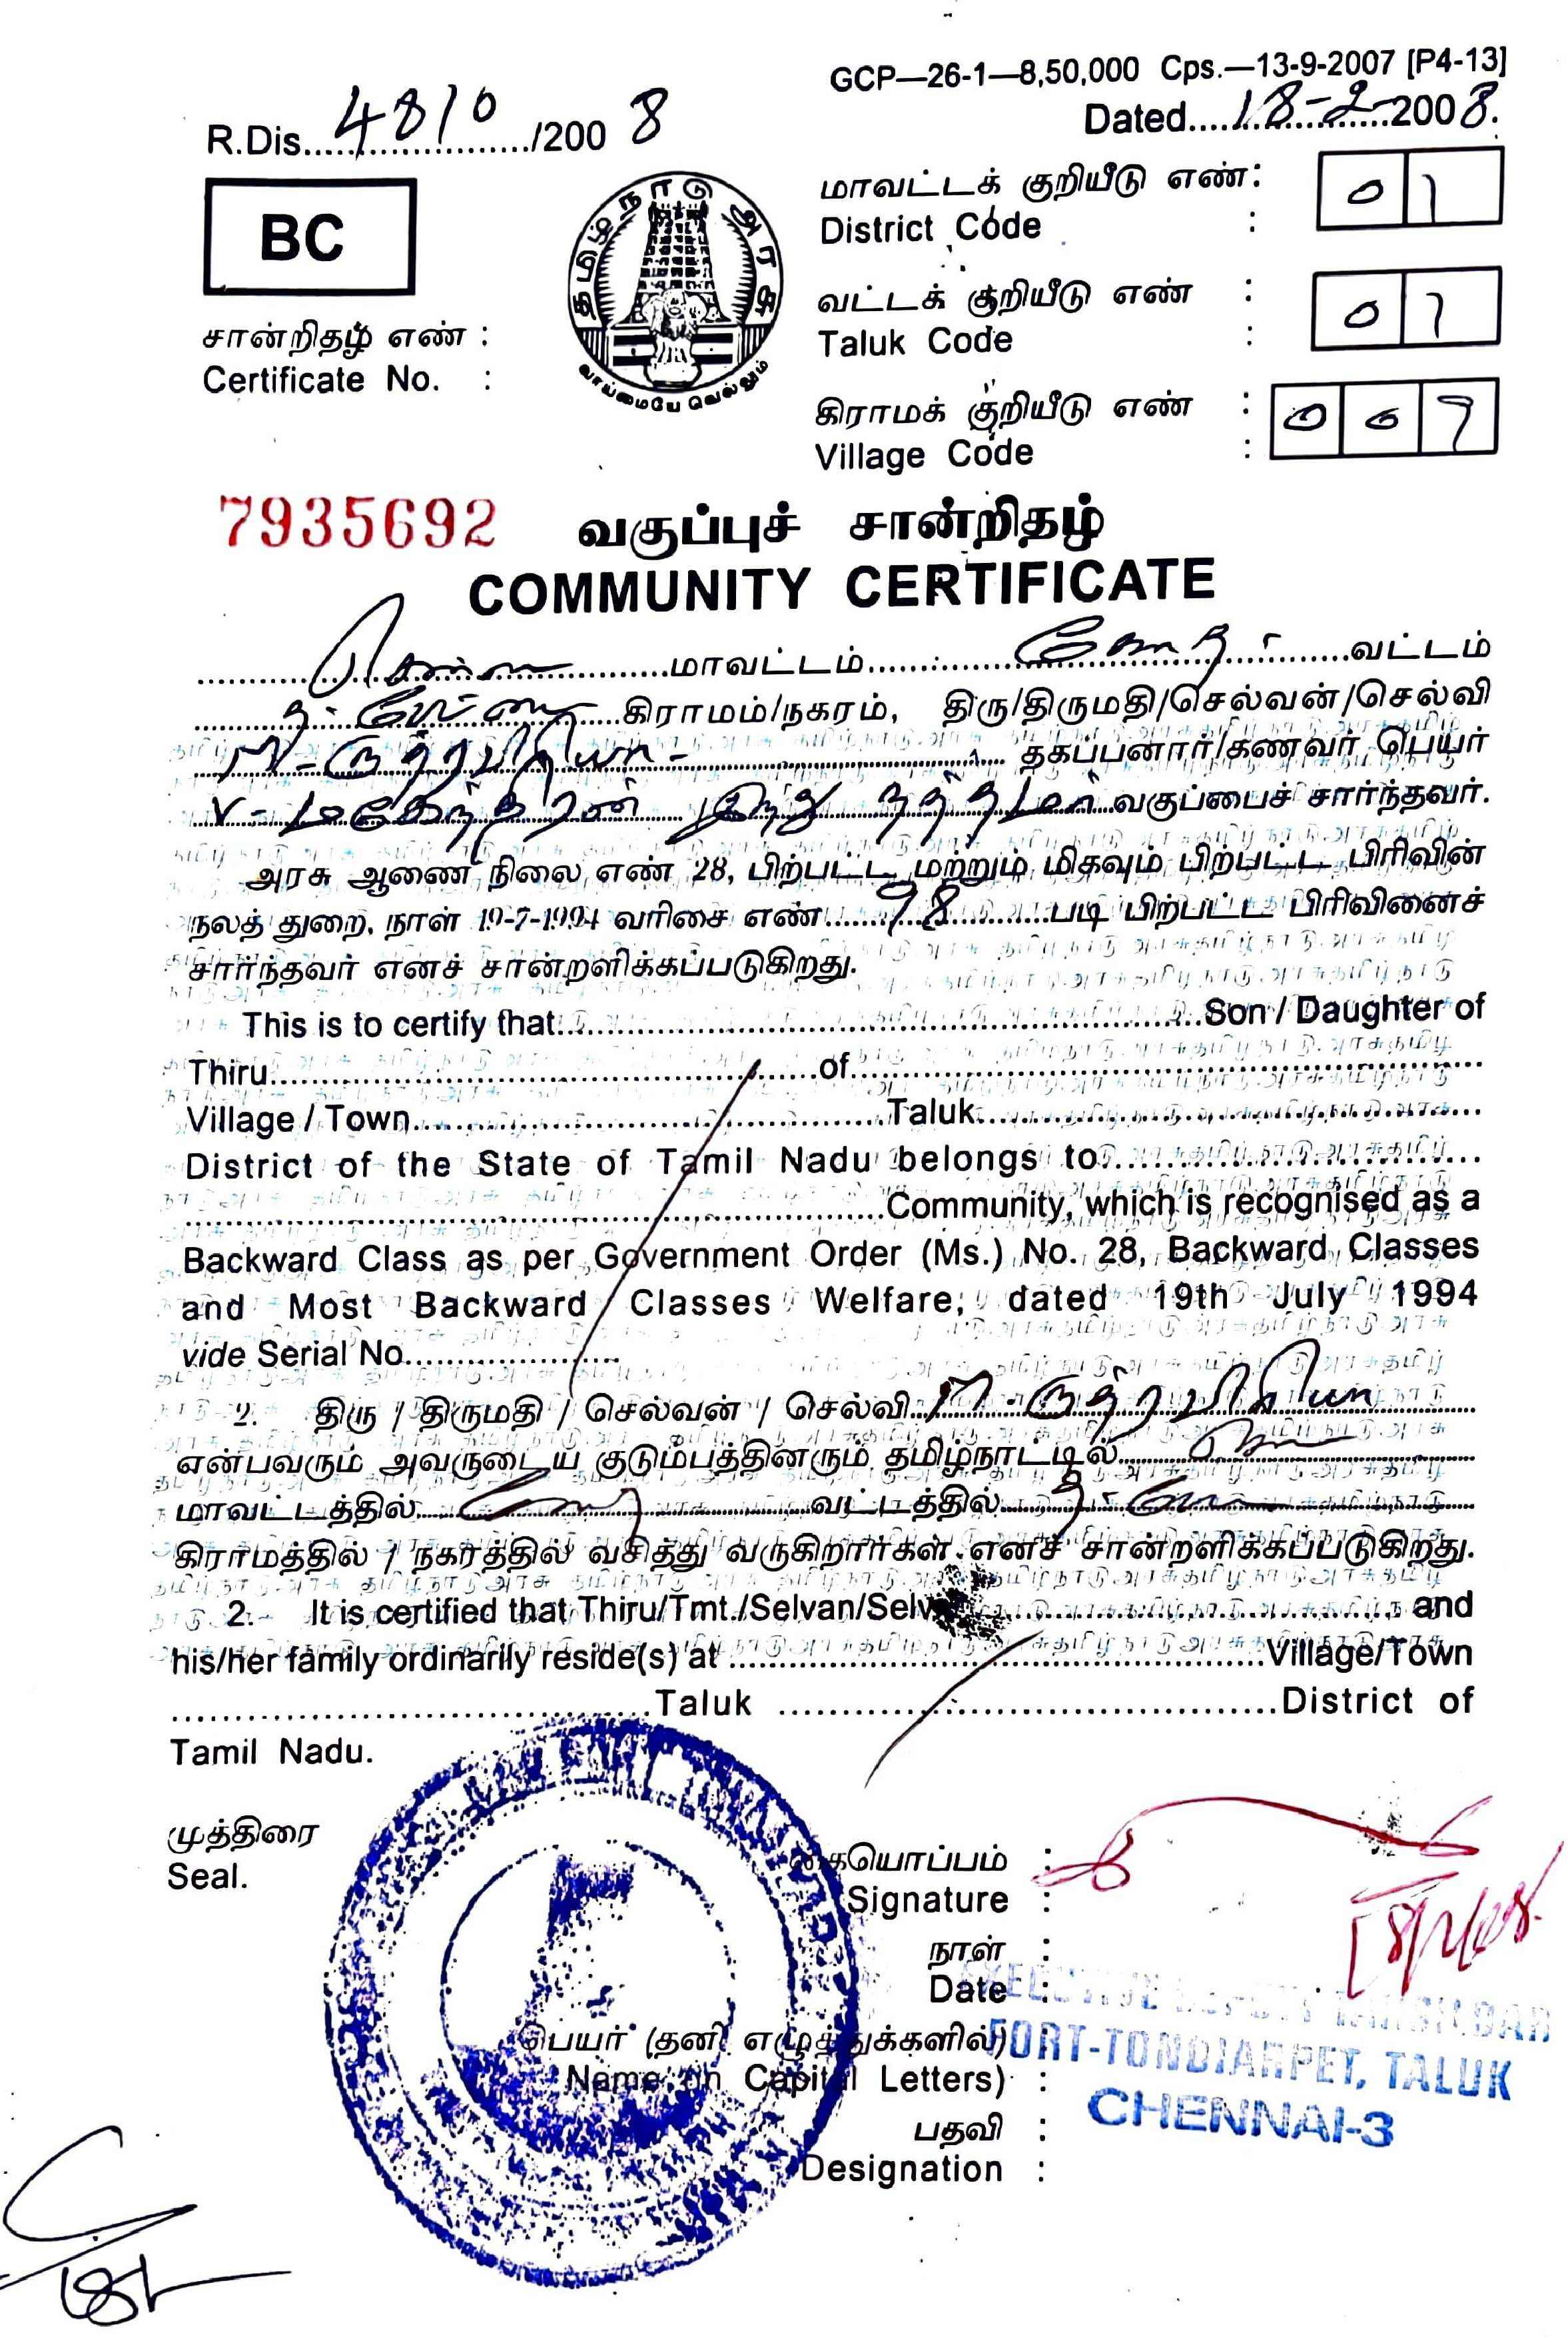 GCP—26-1—8,50,000 Cps.—13-9-2007 [P4-13]
R.Dis....4810..../200 8
Dated....18-2-2008.
BC
தமிழ்நாடு அரசு
வாய்மையே வெல்லும்
மாவட்டக் குறியீடு எண் : 0 1
District Code :
வட்டக் குறியீடு எண் : 0 1
Taluk Code :
சான்றிதழ் எண் :
Certificate No. :
கிராமக் குறியீடு எண் : 0 0 7
Village Code :
7935692
வகுப்புச் சான்றிதழ்
COMMUNITY CERTIFICATE
சென்னை மாவட்டம் கோ.த வட்டம்
கிராமம்/நகரம், திரு/திருமதி/செல்வன்/செல்வி
M - ருத்ரபிரியா - தகப்பனார்/கணவர் பெயர்
V - மகேந்திரன் இந்து வகுப்பைச் சார்ந்தவர்.
அரசு ஆணை நிலை எண் 28, பிற்பட்ட மற்றும் மிகவும் பிற்பட்ட பிரிவின்
நலத் துறை, நாள் 19-7-1994 வரிசை எண் 98 படி பிற்பட்ட பிரிவினைச்
சார்ந்தவர் எனச் சான்றளிக்கப்படுகிறது.
This is to certify that....................Son / Daughter of
Thiru....................of....................
Village / Town....................Taluk....................
District of the State of Tamil Nadu belongs to....................
....................Community, which is recognised as a
Backward Class as per Government Order (Ms.) No. 28, Backward Classes
and Most Backward Classes Welfare, dated 19th July 1994
vide Serial No....................
2. திரு / திருமதி / செல்வன் / செல்வி M - ருத்ரபிரியா
என்பவரும் அவருடைய குடும்பத்தினரும் தமிழ்நாட்டில்
மாவட்டத்தில் வட்டத்தில்
கிராமத்தில் / நகரத்தில் வசித்து வருகிறார்கள் எனச் சான்றளிக்கப்படுகிறது.
2. It is certified that Thiru/Tmt./Selvan/Selvi....................and
his/her family ordinarily reside(s) at ....................Village/Town
....................Taluk ....................District of
Tamil Nadu.
முத்திரை
Seal.
கையொப்பம் :
Signature :
18/2/08
நாள் :
Date :
பெயர் (தனி எழுத்துக்களில்)
Name (in Capital Letters) :
FORT-TONDIARPET, TALUK
CHENNAI-3
பதவி :
Designation :